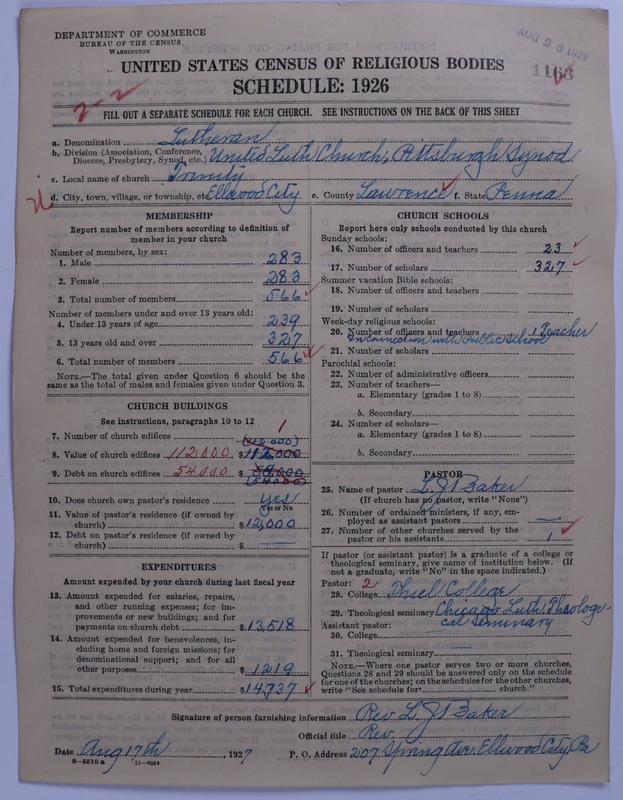 DEPARTMENT OF COMMERCE
BUREAU OF THE CENSUS
WASHINGTON
AUG 20 1927
1166
UNITED STATES CENSUS OF RELIGIOUS BODIES
SCHEDULE: 1926
2-2
FILL OUT A SEPARATE SCHEDULE FOR EACH CHURCH. SEE INSTRUCTIONS ON THE BACK OF THIS SHEET
a. Denomination Lutheran
b. Division (Association, Conference, Diocese, Presbytery, Synod, etc.) United Luth Church, Pittsburgh Synod
c. Local name of church Trinity
d. City, town, village, or township, etc. Ellwood City e. County Lawrence f. State Penna
MEMBERSHIP
Report number of members according to definition of
member in your church
Number of members, by sex:
1. Male 283
2. Female 283
3. Total number of members 566
Number of members under and over 13 years old:
4. Under 13 years of age 239
5. 13 years old and over 327
6. Total number of members 566
NOTE.—The total given under Question 6 should be
same as the total of males and females given under Question 3.
CHURCH BUILDINGS
See instructions, paragraphs 10 to 12
7. Number of church edifices 1
(112,000)
8. Value of church edifices 112000 $112,000
9. Debt on church edifices 54000 $58,000
(54,000)
10. Does church own pastor's residence yes
Yes or No
11. Value of pastor's residence (if owned by
church) $12,000
12. Debt on pastor's residence (if owned by
church) $
EXPENDITURES
Amount expended by your church during last fiscal year
13. Amount expended for salaries, repairs,
and other running expenses; for im-
provements or new buildings; and for
payments on church debt $13,518
14. Amount expended for benevolences, in-
cluding home and foreign missions; for
denominational support; and for all
other purposes $1219
15. Total expenditures during year $14,737
CHURCH SCHOOLS
Report here only schools conducted by this church
Sunday schools:
16. Number of officers and teachers 23
17. Number of scholars 327
Summer vacation Bible schools:
18. Number of officers and teachers
19. Number of scholars
Week-day religious schools:
20. Number of officers and teachers 1 Teacher
In connection with Public School
21. Number of scholars
Parochial schools:
22. Number of administrative officers
23. Number of teachers—
a. Elementary (grades 1 to 8)
b. Secondary
24. Number of scholars—
a. Elementary (grades 1 to 8)
b. Secondary
PASTOR
25. Name of pastor L. J. Baker
(If church has no pastor, write "None")
26. Number of ordained ministers, if any, em-
ployed as assistant pastors —
27. Number of other churches served by the
pastor or his assistants 1
If pastor (or assistant pastor) is a graduate of a college or
theological seminary, give name of institution below. (If
not a graduate, write "No" in the space indicated.)
Pastor: 2
28. College Thiel College
29. Theological seminary Chicago Luth. Theologi-
Assistant pastor: cal Seminary
30. College
31. Theological seminary
NOTE.—Where one pastor serves two or more churches,
Questions 28 and 29 should be answered only on the schedule
for one of the churches; on the schedules for the other churches,
write "See schedule for church."
Signature of person furnishing information Rev. L. J. Baker
Official title Rev.
Date Aug 17th, 1927 P. O. Address 207 Spring Ave. Ellwood City, Pa
8—5519 a 11—9034